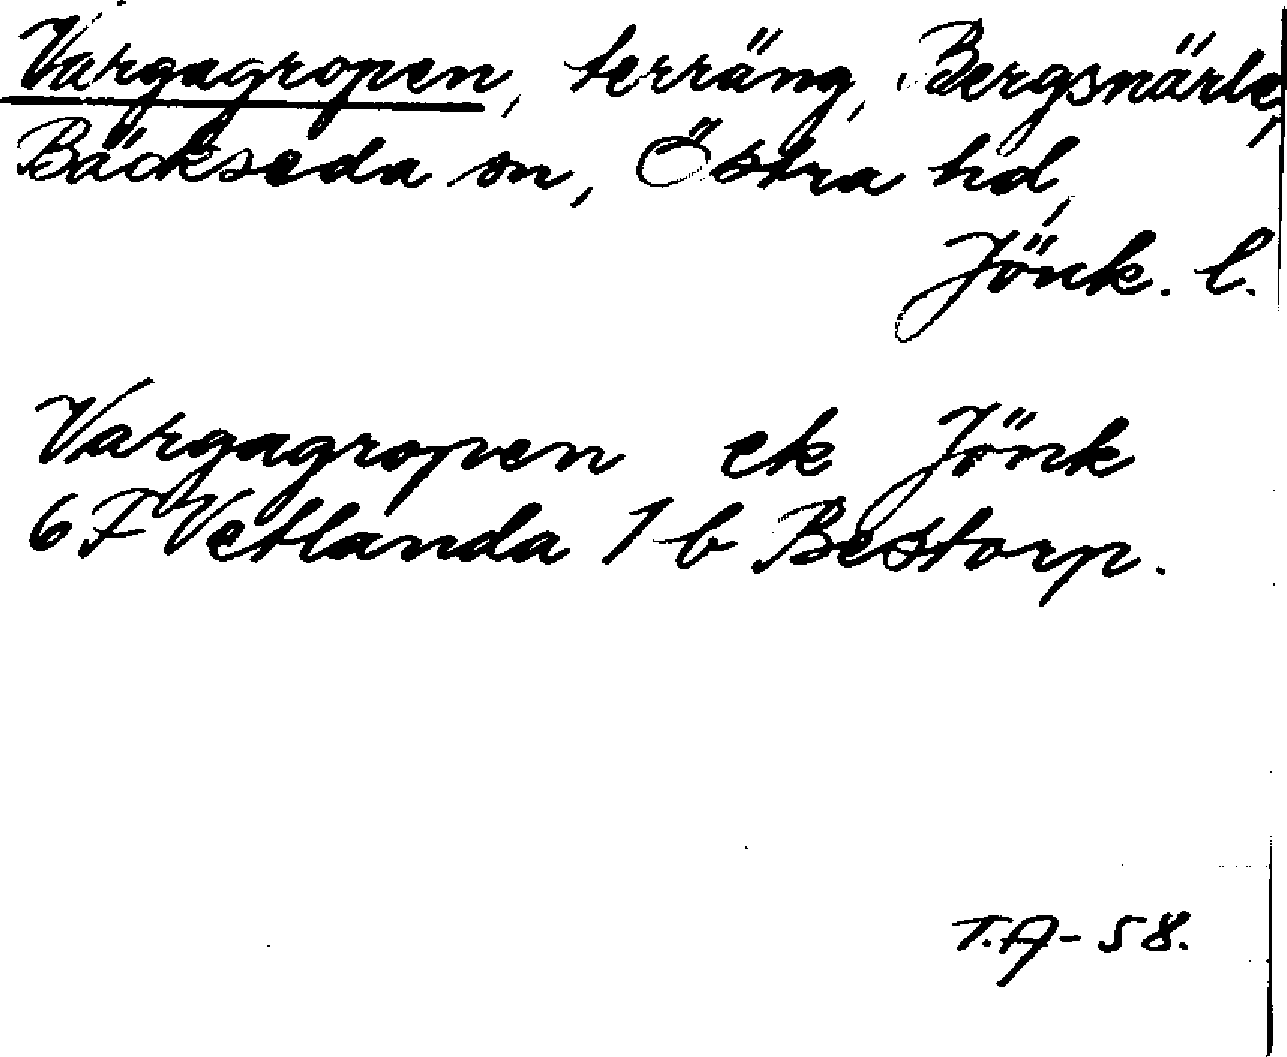 Vargagropen, terräng, Bergsnärle,
Bäckseda sn, Östra hd,
Jönk. l.
Vargagropen ek Jönk
6F Vetlanda 1 b Bestorp.
T.A-58.